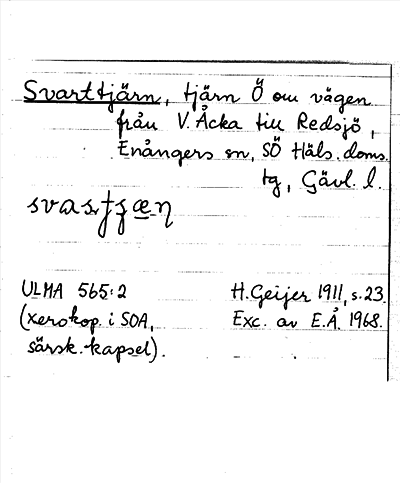 Svarttjärn, tjärn Ö om vägen
från V. Åcka till Redsjö,
Enångers sn, SÖ Häls. doms.
tg, Gävl. l.
ULMA 565:2
(xerokop. i SOA,
särsk. kapsel).
H. Geijer 1911, s. 23.
Exc. av E.Å. 1968.